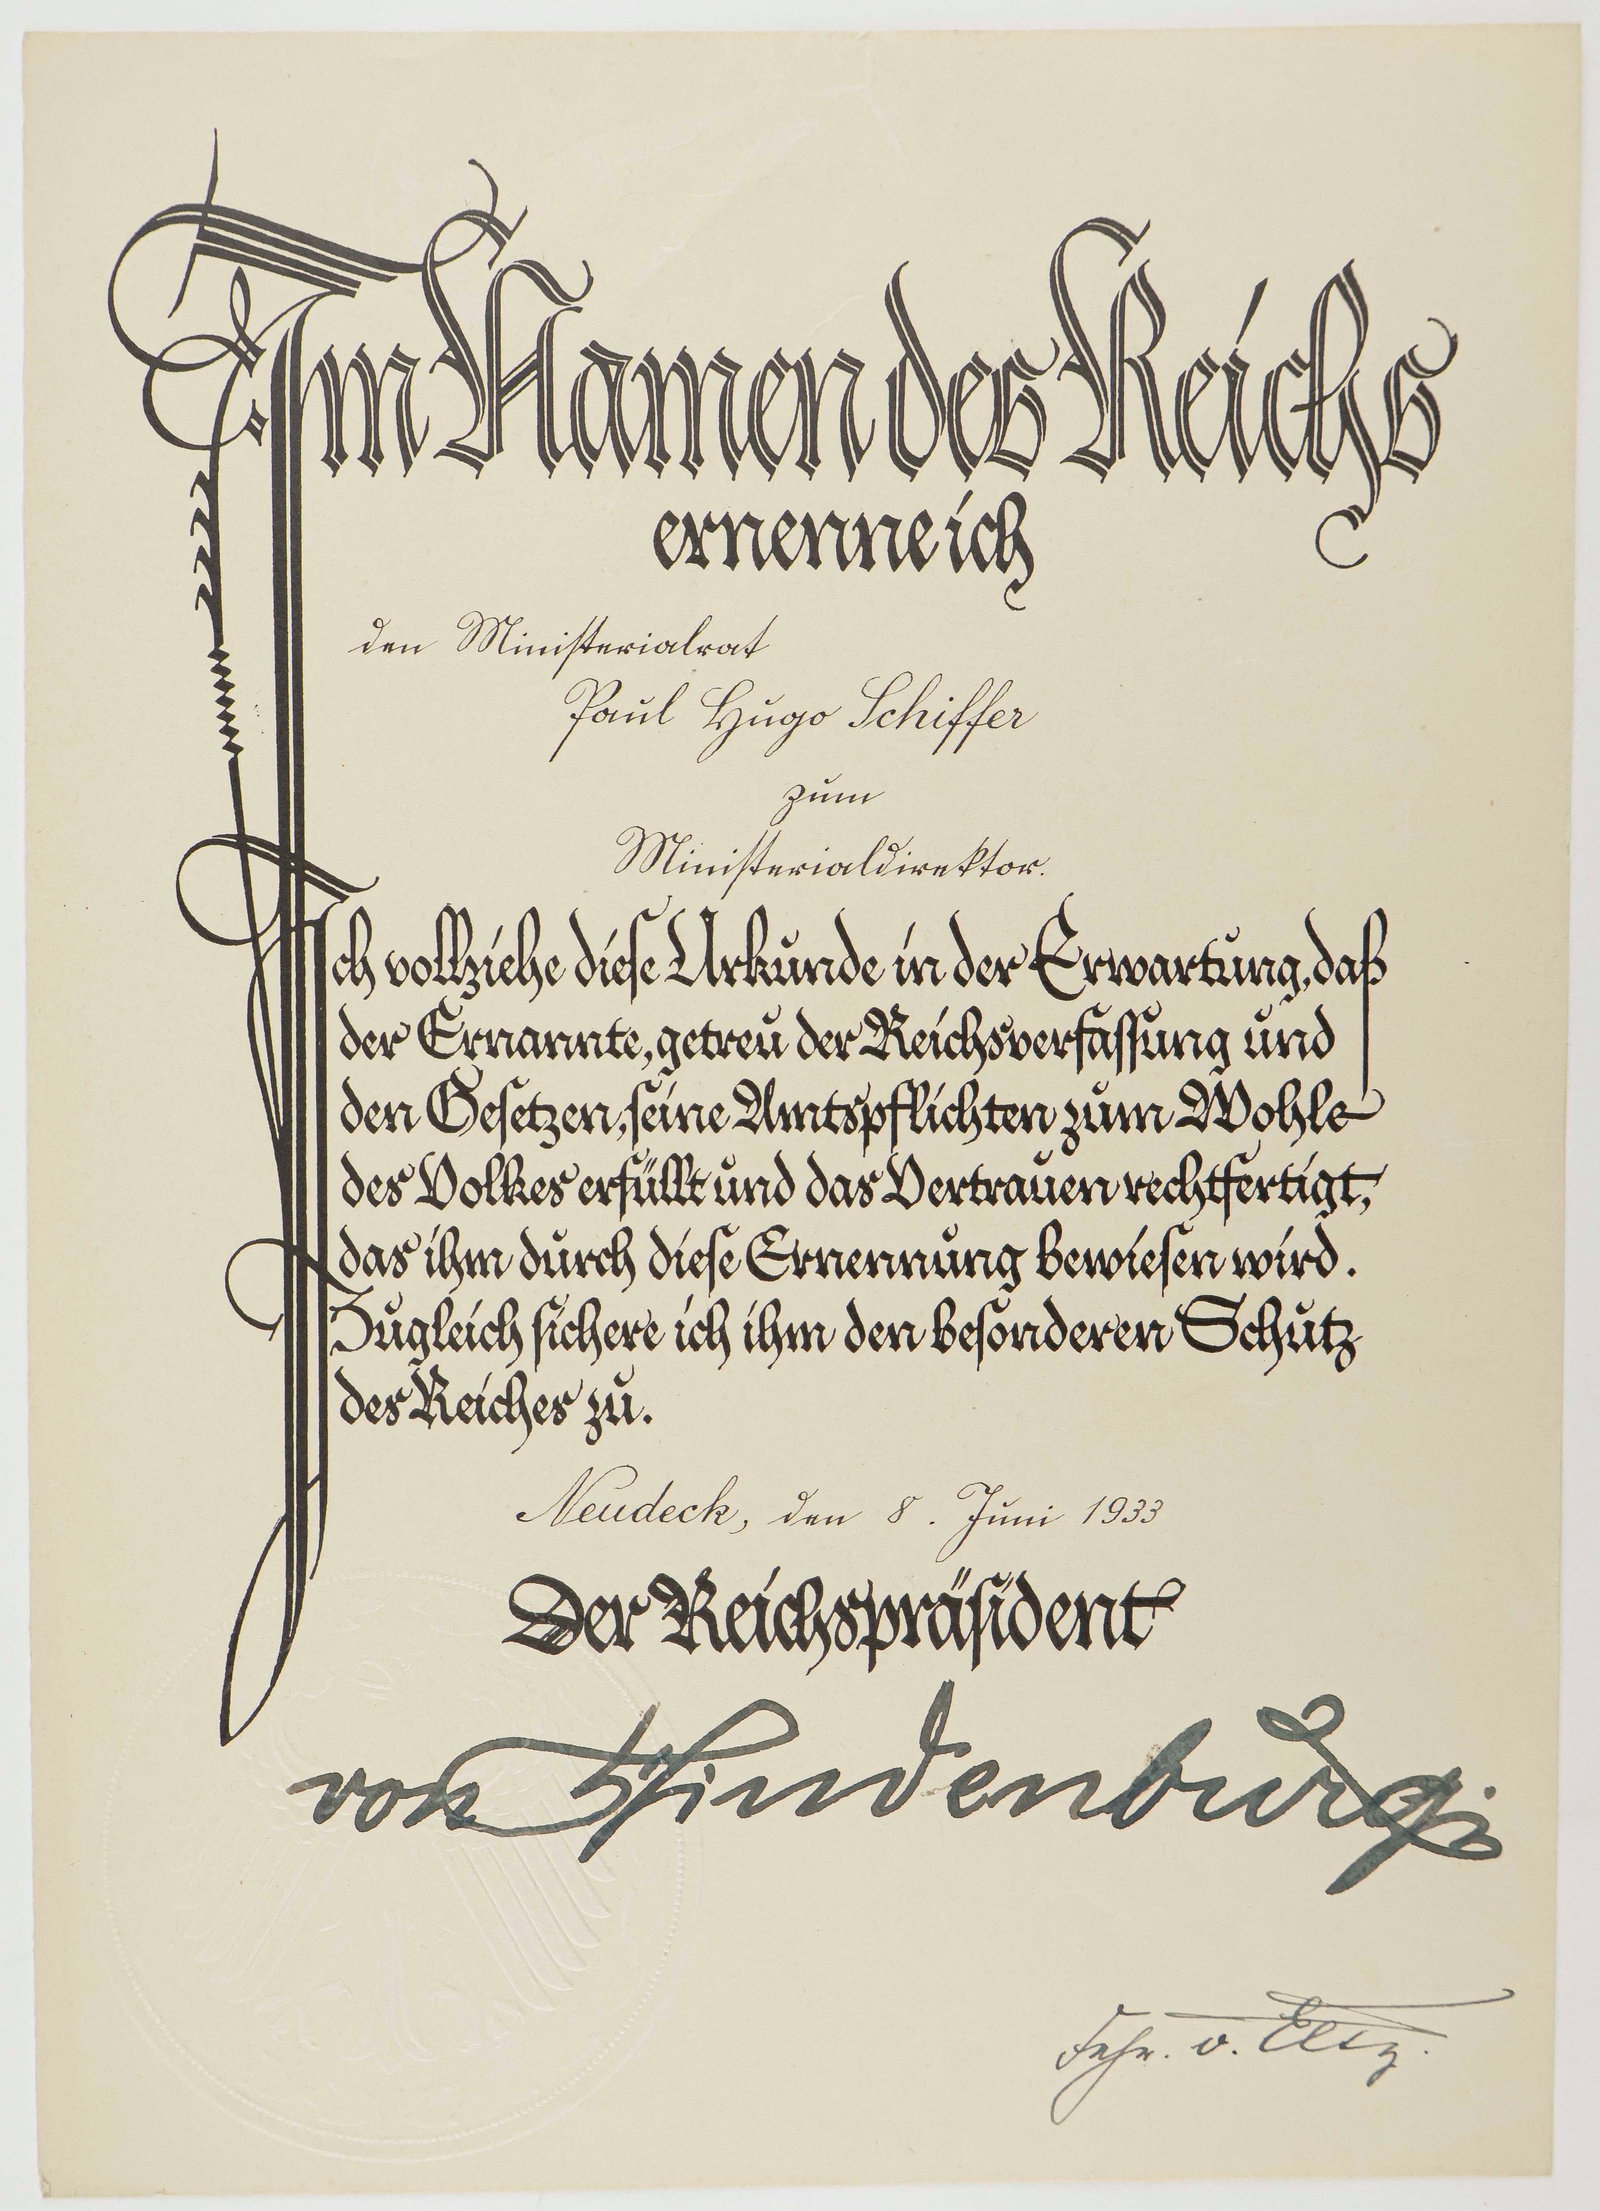 Im Namen des Reichs
ernenne ich
den Ministerialrat
Paul Hugo Schiffer
zum
Ministerialdirektor.
Ich vollziehe diese Urkunde in der Erwartung, daß
der Ernannte, getreu der Reichsverfassung und
den Gesetzen, seine Amtspflichten zum Wohle
des Volkes erfüllt und das Vertrauen rechtfertigt,
das ihm durch diese Ernennung bewiesen wird.
Zugleich sichere ich ihm den besonderen Schutz
des Reiches zu.
Neudeck, den 8. Juni 1933
Der Reichspräsident
von Hindenburg
Frhr. v. Eltz.